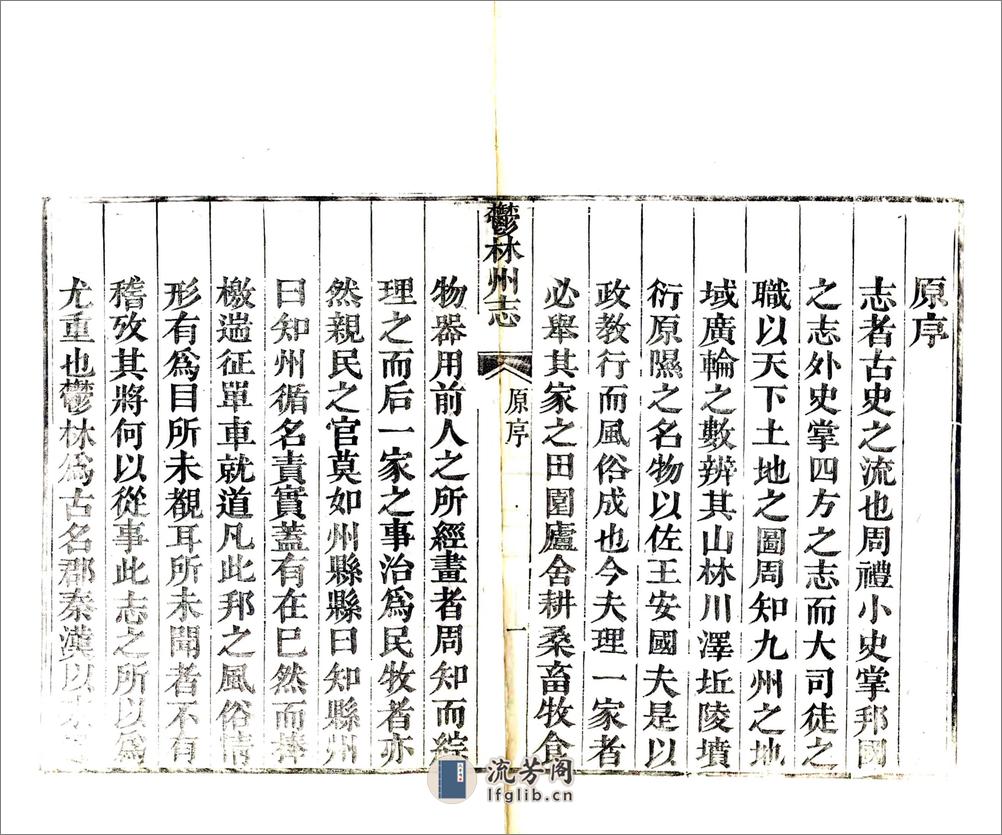 原序
志者古史之流也周禮小史掌邦國
之志外史掌四方之志而大司徒之
職以天下土地之圖周知九州之地
域廣輪之數辨其山林川澤丘陵墳
衍原隰之名物以佐王安國夫是以
政教行而風俗成也今夫理一家者
必舉其家之田園廬舍耕桑畜牧食
鬱林州志
原序
一
物器用前人之所經畫者周知而綜
理之而后一家之事治爲民牧者亦
然親民之官莫如州縣縣曰知縣州
曰知州循名責實蓋有在巳然而捧
檄遄征單車就道凡此邦之風俗情
形有爲目所未覩耳所未聞者不有
稽攷其將何以從事此志之所以爲
尤重也鬱林爲古名郡秦漢以來
流芳阁
lfglib.cn